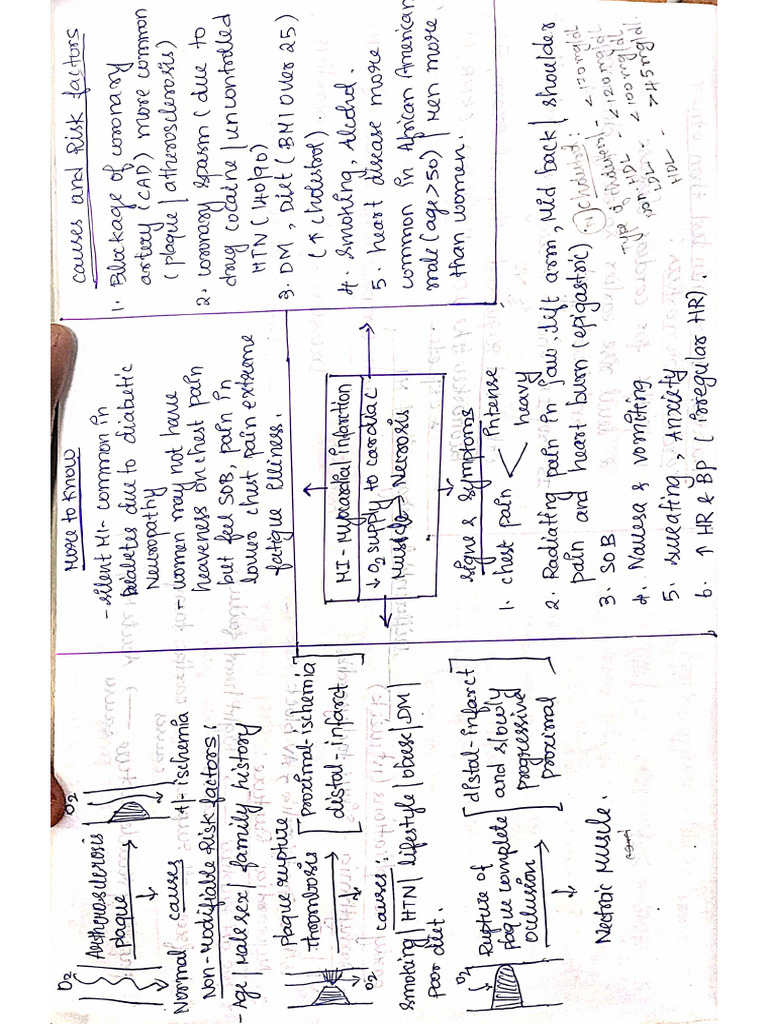 O2
Aetherosclerosis
plaque
O2
Normal
causes
+/- ischemia
Non-Modifiable Risk factors:
- Age | Male sex | family history
Plaque rupture
Thrombosis
proximal-ischemia
distal-infarct
O2
causes:
Smoking | HTN | lifestyle | obese | DM |
Poor diet.
O2
Rupture of
plaque complete
occlusion
distal-infarct
and slowly
progressive
proximal
Necrotic Muscle.
More to Know
- Silent MI- common in
Diabetes due to diabetic
Neuropathy
- women may not have
heaveness on chest pain
but feel SOB, pain in
lower chest pain extreme
fatigue illiness.
MI - Myocardial infarction
↓ O2 supply to cardiac
Muscle → Necrosis
causes and Risk factors
1. Blockage of coronary
artery (CAD) more common
(plaque | atherosclerosis)
2. coronary spasm (due to
drug cocaine | uncontrolled
HTN (140/90)
3. DM, Diet (BMI over 25)
(↑ cholestrol).
4. Smoking, Alcohol.
5. heart disease more
common in African American
male (age >50) | Men more
than women.
Signs & Symptoms
1. chest pain < intense
heavy
2. Radiating pain in jaw, left arm, Mid back | shoulder
pain and heart burn (epigastric)
3. SOB
4. Nausea & vomiting
5. Sweating, Anxiety
6. ↑ HR & Bp (irregular HR).
cholesterol:
Type of
Non HDL - <120mg/dl
LDL - <100mg/dl
HDL - >45mg/dl.